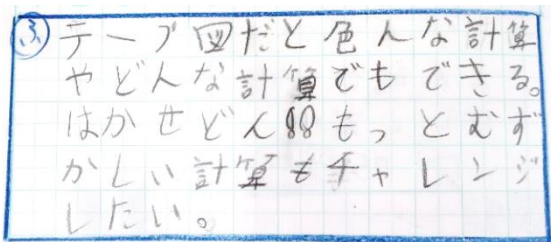 ふ テープ図だと色んな計算
やどんな計算でもできる。
はかせどん88もっとむず
かしい計算もチャレンジ
したい。